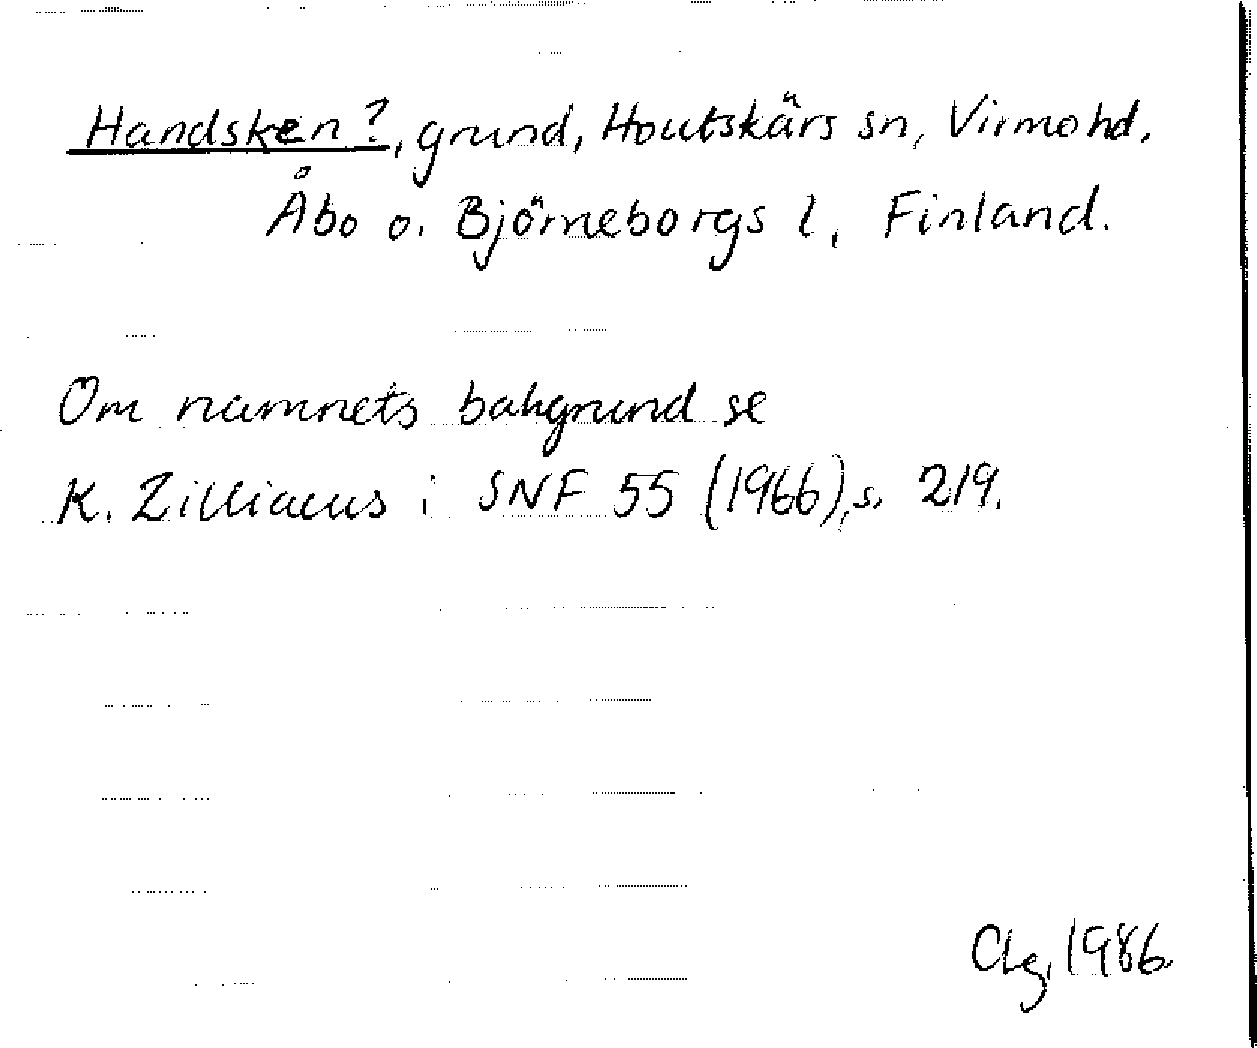 Handsken?, grund, Houtskärs sn, Virmo hd,
Åbo o. Björneborgs l, Finland.
Om namnets bakgrund se
K. Zilliacus i SNF 55 (1966), s. 219.
Clg, 1986